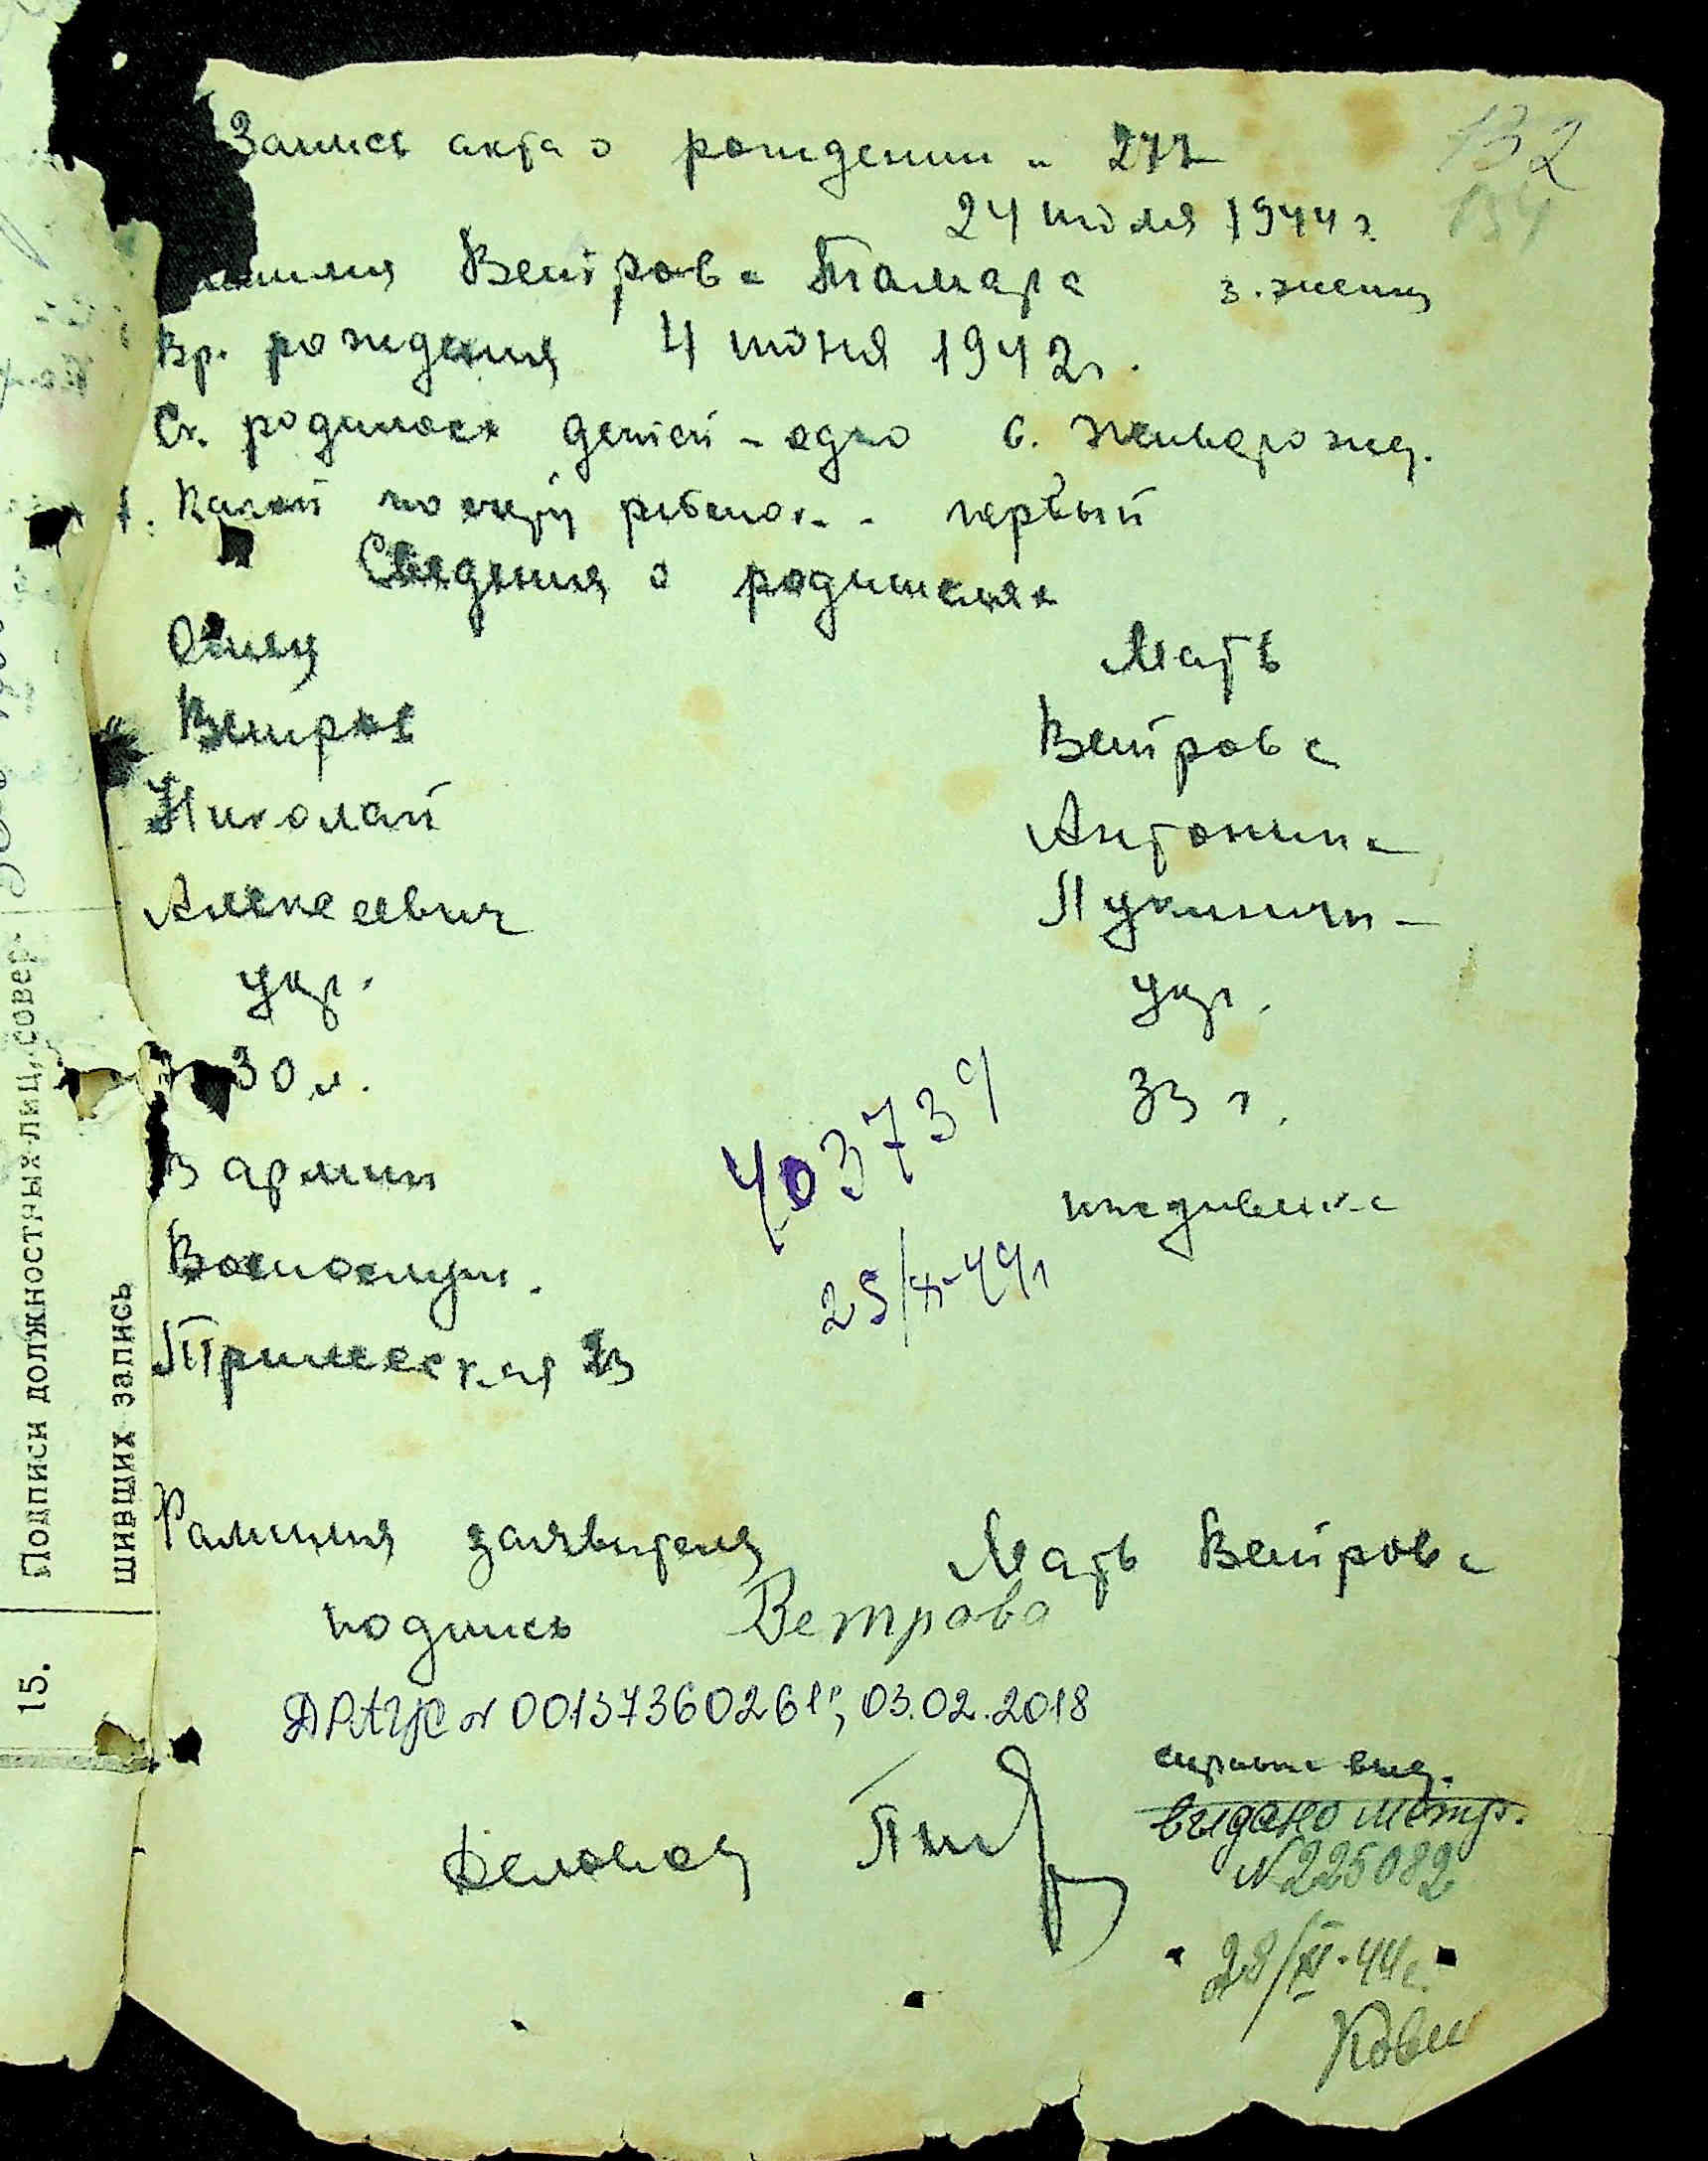 Запись акта о рождении н 277
132
134
24 июля 1944 г.
Ветрова Тамара 3. женщ
Вр. рождения 4 июня 1942 г.
Ск. родилось детей - одно 6. живорожд.
Какой по счету ребенок - первый
Сведения о родителях
Отец Мать
Ветров Ветрова
Николай Антонина
Алексеевич
укр. укр.
30 л. 33 г.
403739
В армии
иждивенка
Военослуж.
25/XI-44 г
23
Фамилия заявителя Мать Ветрова
подпись Ветрова
ДРАЦС № 00137360261, 03.02.2018
справка выд.
выдано метр.
Деловод
№ 225082
28/XI-44 г.
Подписи должностных лиц, совер-
шивших запись
15.